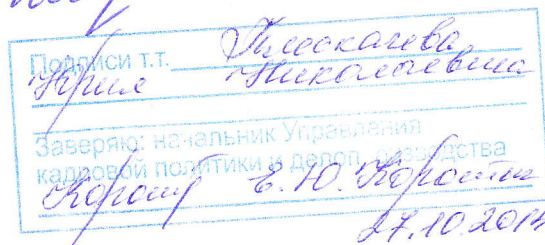 Подписи т.т. Плескачева
Юрия Николаевича
Заверяю: начальник Управления
кадровой политики и делопроизводства
Коротт Е.Ю.
27.10.2014